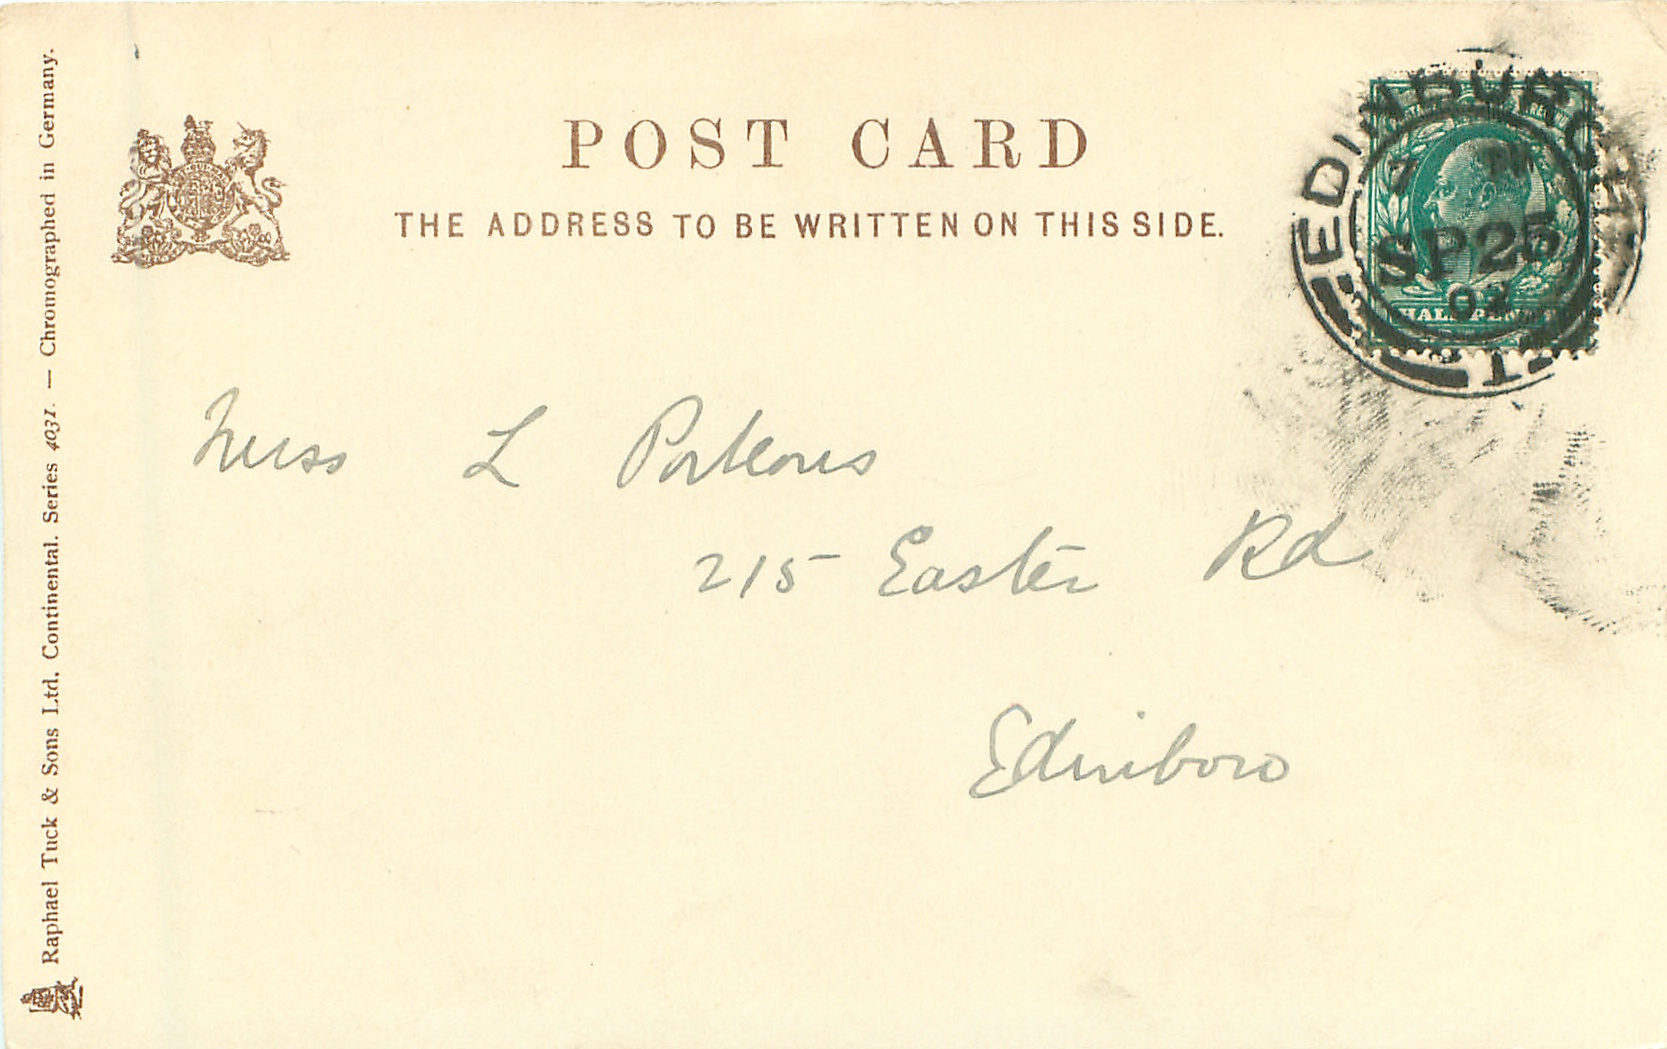 POST CARD
THE ADDRESS TO BE WRITTEN ON THIS SIDE.
EDINBURGH
SP 25
HALF PENNY
1
Miss L Porteous
215 Easter Rd
Edinboro
Raphael Tuck & Sons Ltd. Continental. Series 4031. — Chromographed in Germany.